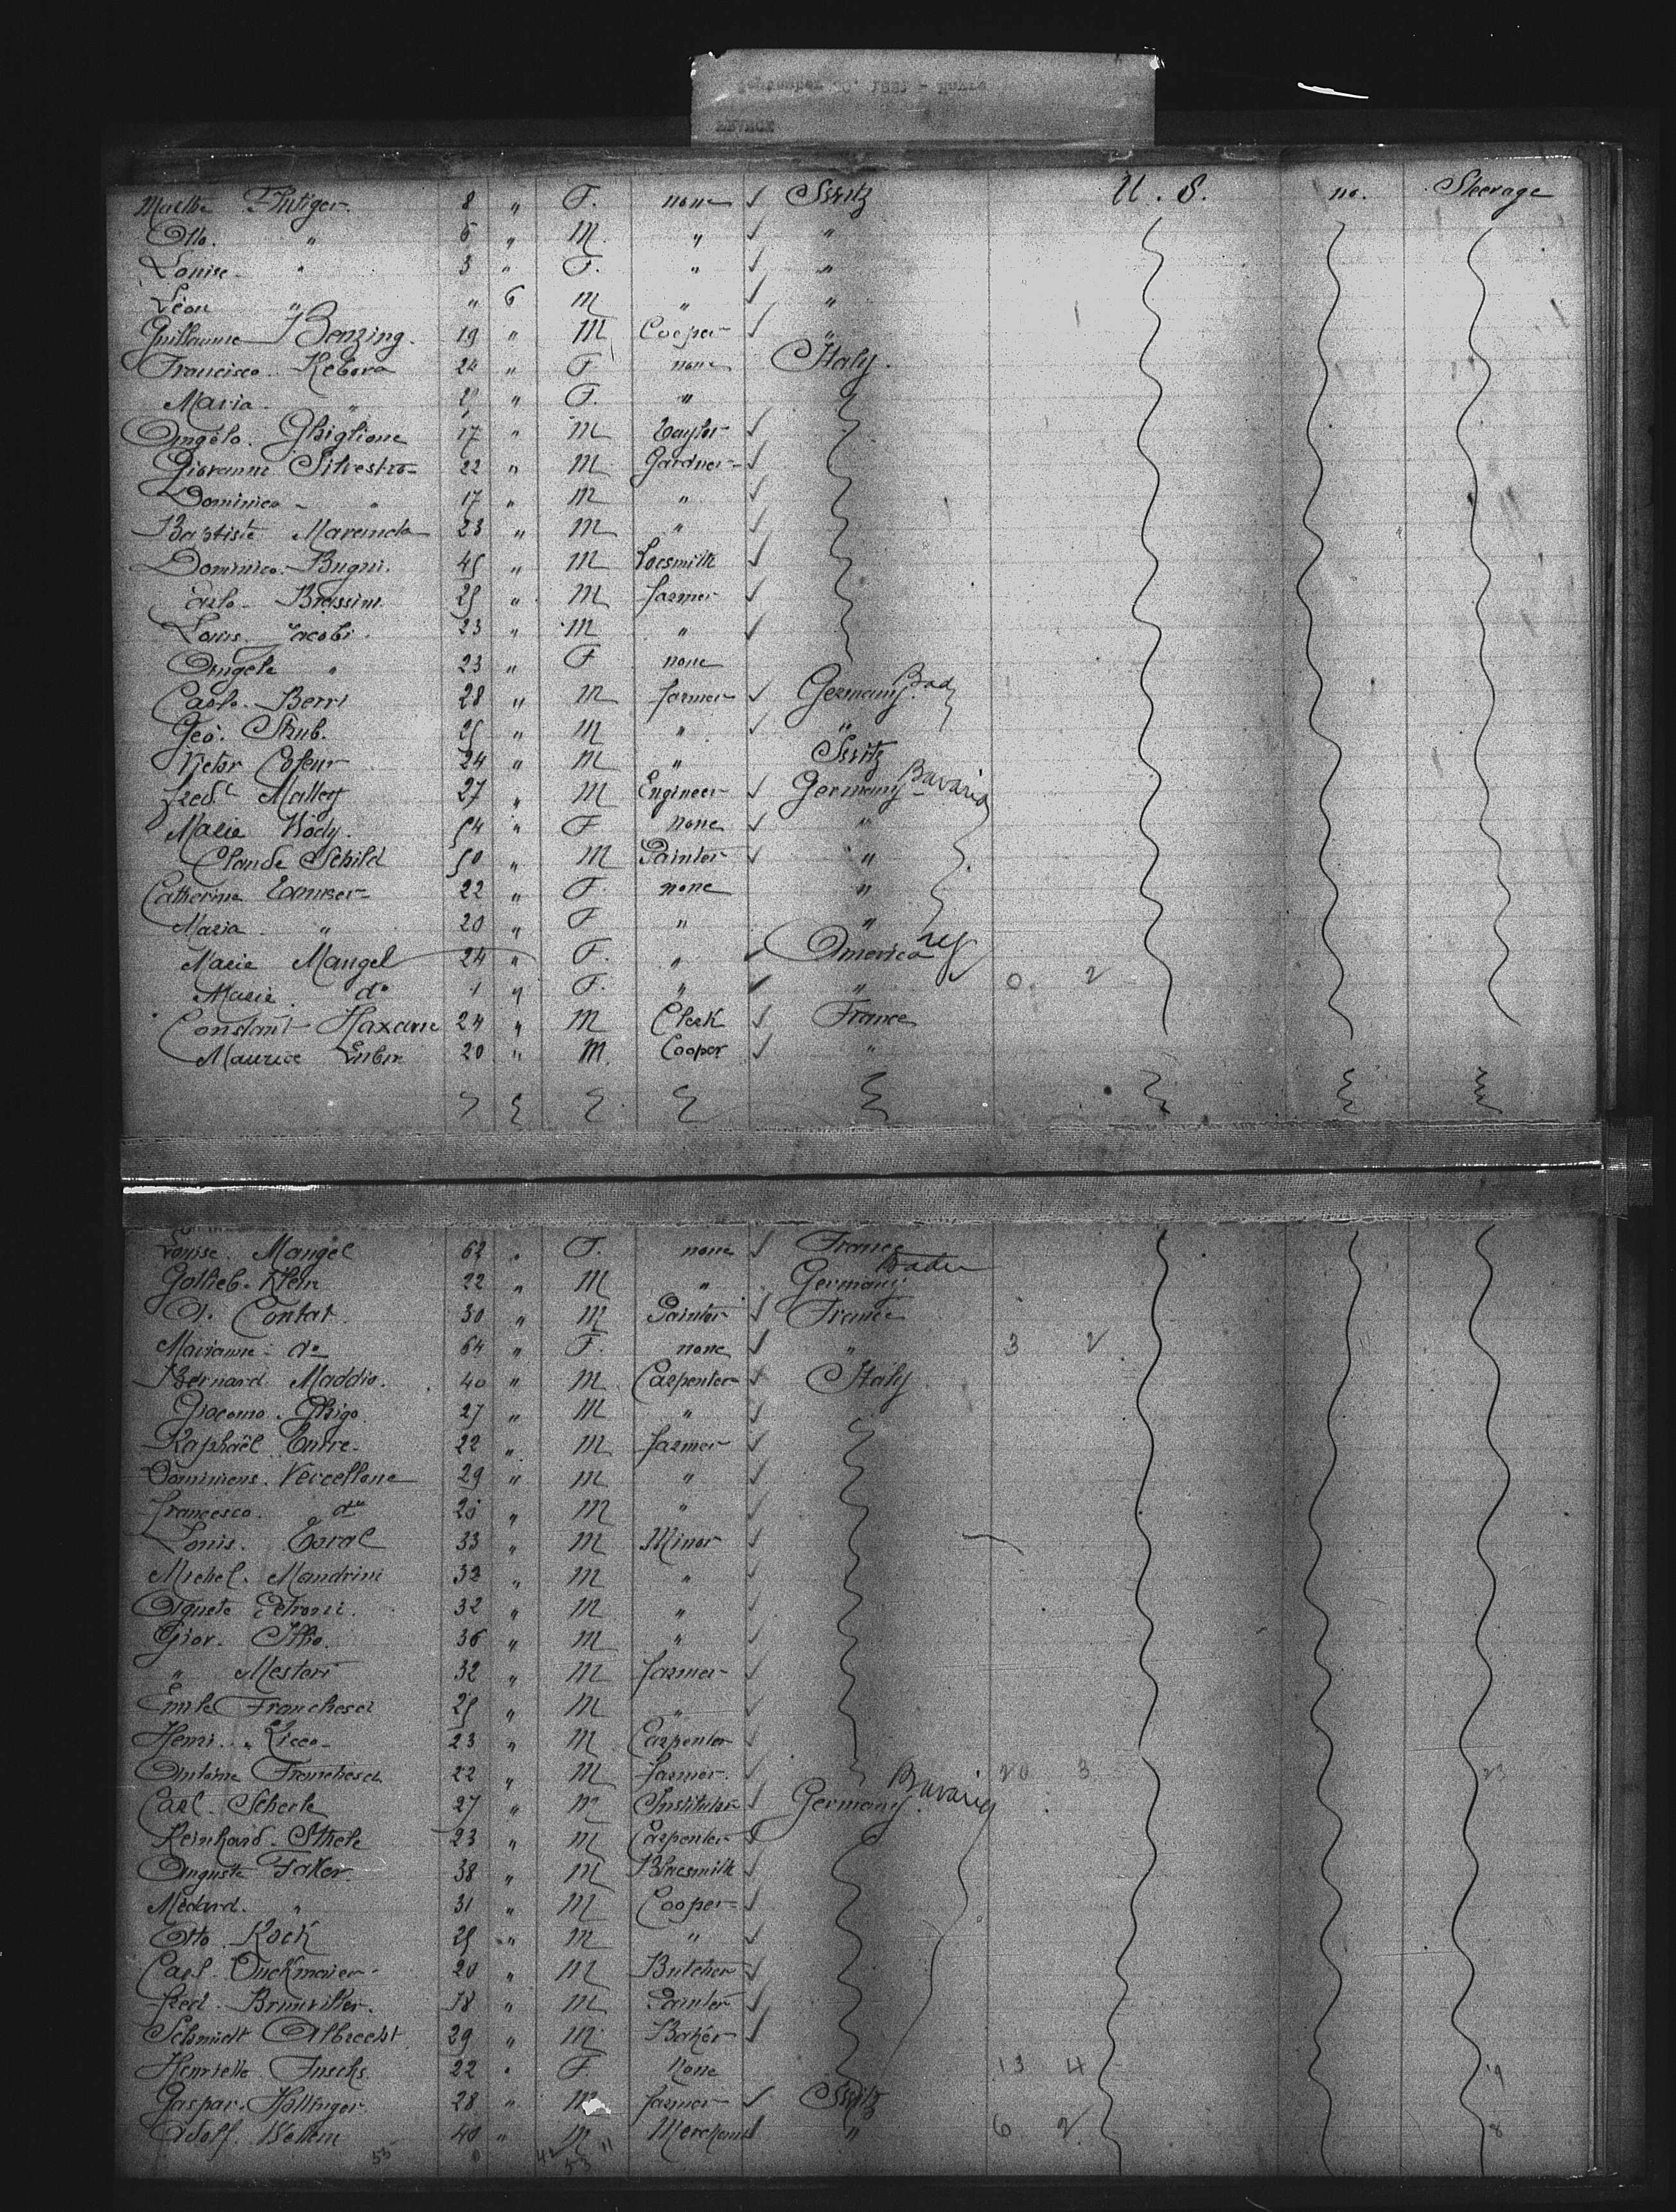 Flutiger. 8 " F. none ✓ Switz U. S. no. Steerage
Otto. " 5 " M. " ✓ "
Louise " 3 " F. " ✓ "
Léon " " 6 M " ✓ "
Guillaume Benzing. 19 " M Cooper ✓ "
Francisco Rebora 24 " F none Italy.
Maria. " " F. "
Angélo. Ghiglione 17 " M Taylor ✓
Giovanni Silvestro 22 " M Gardner ✓
Dominico " 17 " M " ✓
Baptiste 23 " M " ✓
Dominico. Bugni. 45 " M Locsmith ✓
Carlo Brassini 25 " M farmer ✓
Louis Jacobi. 23 " M " ✓
Angele " 23 " F none
Carlo. Berri 28 " M farmer ✓ Germany. Bad
Geo. Strub. 25 " M " ✓ "
Victor 24 " M " Switz
Fred. Malley 27 " M Engineer ✓ Germany Bavaria
Marie Wody. 54 " F none ✓ "
Claude Schild 50 " M Painter ✓ "
Catherine 22 " F. none "
Maria " 20 " F " "
Marie Mangel 24 " F. " ✓ America
Marie. do 1 " F. " ✓ " 0 2
Constant Haxaire 24 " M Clerk ✓ France
Maurice 20 " M. Cooper ✓ "
Louise. Mangel 62 " F. none ✓ France
Gottlieb. Klein 22 " M " Germany Baden
A. Contat. 30 " M Painter ✓ France
Marianne do 64 " F. none ✓ " 3 2
Bernard Maddio. 40 " M Carpenter ✓ Italy
Giacomo. Ghigo 27 " M " ✓
Raphaël 22 " M farmer ✓
Vercellone 29 " M " ✓
Francesco. do 25 " M " ✓
Louis. 33 " M Minor ✓
Michel. Mandrini 32 " M " ✓
Petroni. 32 " M " ✓
Giov. 36 " M " ✓
" Mesteri 32 " M farmer ✓
Emile Franchesci 25 " M " ✓
Henri. Ricco 23 " M Carpenter ✓
Antoine Franchesci 22 " M farmer. ✓ 20 3 23
Carl. Scherle 27 " M Institutor ✓ Germany. Bavaria
Reinhard. Sthele 23 " M Carpenter ✓
Auguste Faller. 38 " M Blacsmith ✓
Médard. " 31 " M Cooper ✓
Otto. Koch 25 " M " ✓
Carl. 20 " M Butcher ✓
Fred. 18 " M Painter ✓
Schmidt Albrecht 29 " M Baker ✓
Henriette Fuschs 22 " F. None 13 4 19
Gaspar. Hollinger. 28 " M farmer ✓ Switz
Adolf. 40 " M Merchant ✓ " 6 2 8
53 42 11
53